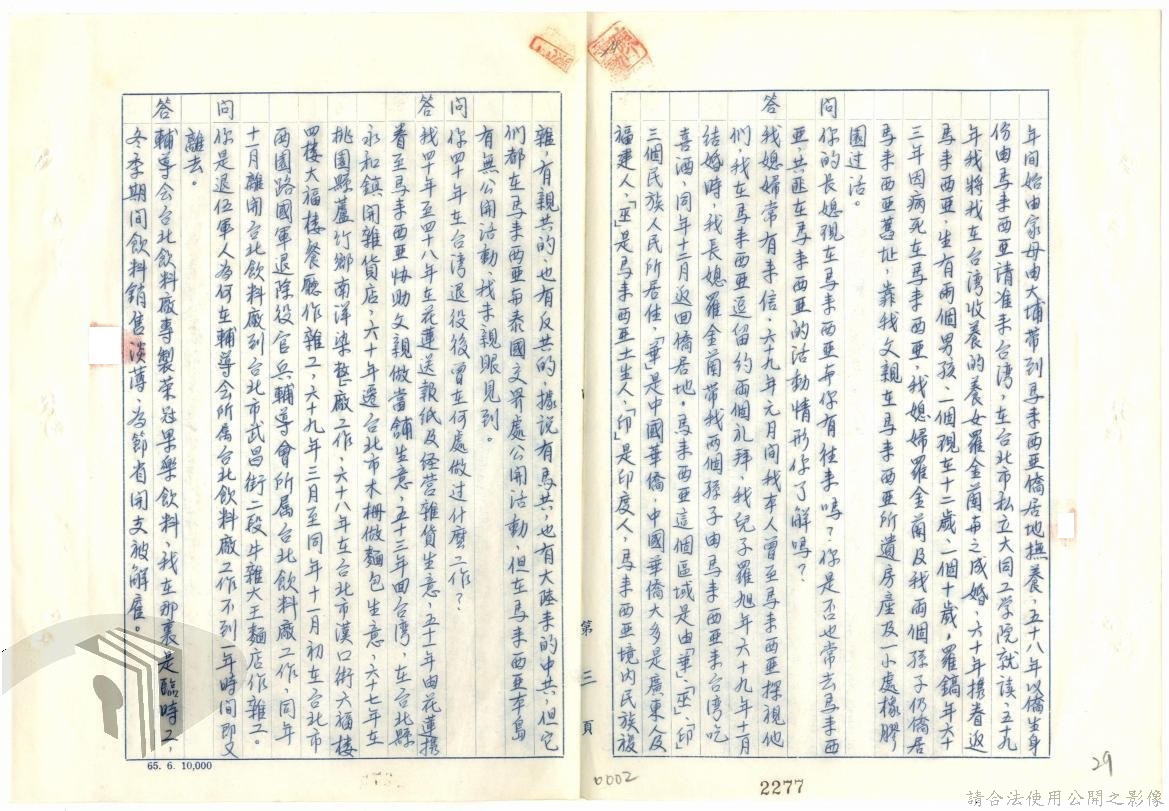 年間始由家母由大埔帶到馬來西亞僑居地撫養、五十八年以僑生身
份由馬來西亞請准來台灣、在台北市私立大同工学院就读、五十九
年我將我在台湾收養的養女羅金蘭両之成婚、六十年携眷返
馬來西亚、生有兩個男孩、一個現在十二歲、一個十歲，羅鎬年六十
三年因病死在馬來西亚，我媳婦羅金蘭及我両個孫子仍僑居
馬來西亚舊址，靠我父親在馬來西亚所遺房產及一小處橡膠
園过活。
問 你的長媳現在馬來西亚与你有往來嗎？你是否也常去馬來西
亚，共匪在馬來西亚的活動情形你了解嗎？
答 我媳婦常有來信、六十九年元月間我本人曾至馬來西亚探視他
們，我在馬來西亚逗留約両個礼拜，我兒子羅旭年六十九年十一月
結婚時，我長媳羅金蘭带我両個孫子由馬來西亚來台湾吃
喜酒，同年十二月返回僑居地。馬來西亚這個區域是由「華」「巫」「印」
三個民族人民所居住，「華」是中國華僑，中國華僑大多是廣東人及
福建人，「巫」是馬來西亚土生人，「印」是印度人，馬來西亚境内民族複
雜，有親共的，也有反共的，據說有馬共，也有大陸來的中共，但它
們都在馬來西亚与泰國交界處公開活動，但在馬來西亚本島
有無公開活動，我未親眼見到。
問 你四十年在台湾退役後，曾在何處做过什麼工作？
答 我四十年至四十八年在花蓮送報紙及经营雜貨生意，五十一年由花蓮携
眷至馬來西亚协助父親做當舖生意，五十三年回台湾，在台北縣
永和鎮開雜貨店，六十年遷台北市木柵做麵包生意，六十七年在
桃園縣蘆竹鄉南洋染整廠工作，六十八年在台北市漢口街六福樓
四樓大福樓餐廳作雜工，六十九年三月至同年十一月初在台北市
両園路國軍退除役官兵輔導會所屬台北飲料廠工作，同年
十一月離開台北飲料廠到台北市武昌街二段牛雜大王麵店作雜工。
問 你是退伍軍人為何在輔導会所属台北飲料廠工作不到一年時间即又
離去。
答 輔導会台北飲料廠專製榮冠果樂飲料，我在那裏是臨時工，
冬季期间飲料銷售淡薄，為節省開支被解雇。
第三頁
65. 6. 10,000
0002
2277
29
請合法使用公開之影像